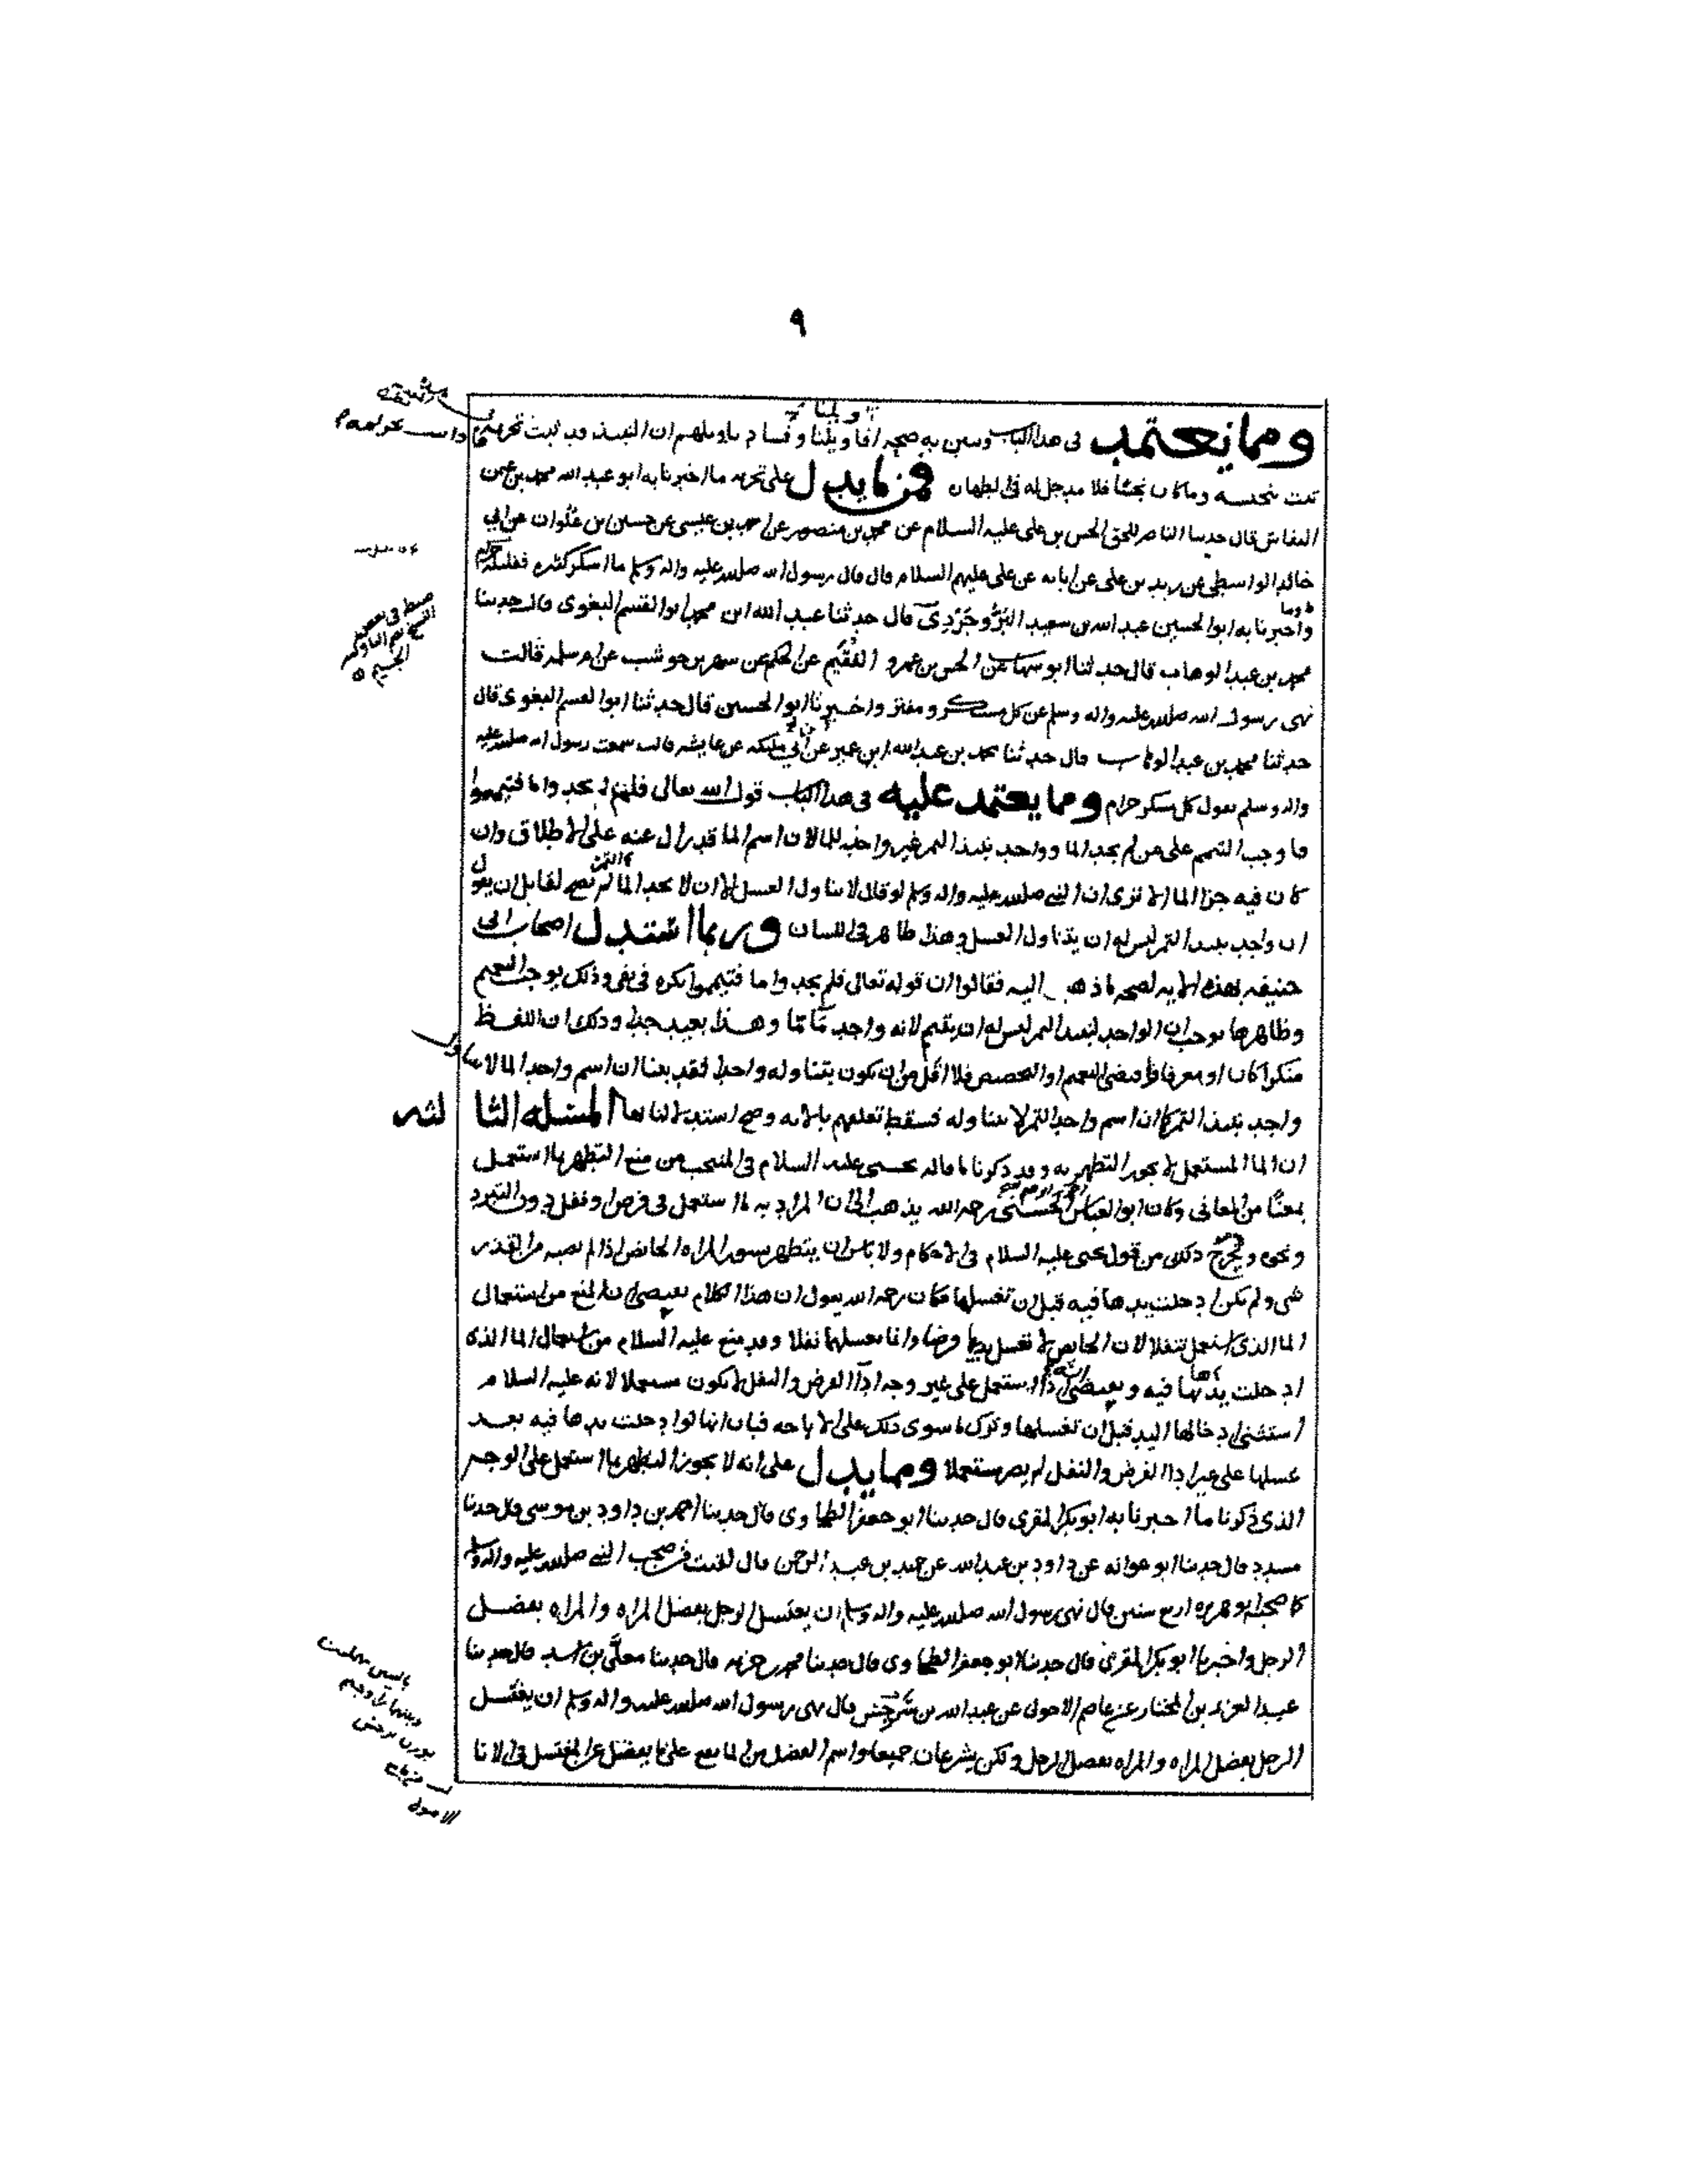 ٩
ومما نعتمد في هذا الباب وتبين به صحة اقاويلنا وفساد تاويلهم ان النبيذ قد ثبت تحريمه
ثبت تنجسه وما كان نجسا فلا مدخل له في الطهارة فمما يدل على تحريمه ما اخبرنا به ابو عبد الله محمد بن عثمن
النقاش قال حدثنا الناصر للحق الحسن بن علي عليه السلام عن محمد بن منصور عن محمد بن عيسى عن حسين بن علوان عن ابي
خالد الواسطي عن زيد بن علي عن ابائه عن علي عليهم السلام قال قال رسول الله صلى الله عليه واله وسلم ما اسكر كثيره فقليله حرام
واخبرنا به ابو الحسين عبد الله بن سعيد البروجردي قال حدثنا عبد الله ابن محمد ابو القسم البغوي قال حدثنا
محمد بن عبد الوهاب قال حدثنا ابو شهاب عن الحسن بن عمرو الفقيم عن الحكم عن شهر بن حوشب عن ام سلمة قالت
نهى رسول الله صلى الله عليه واله وسلم عن كل مسكر ومفتر واخبرنا ابو الحسين قال حدثنا ابو القسم البغوي قال
حدثنا محمد بن عبد الوهاب قال حدثنا محمد بن عبد الله ابن عمير عن ابن ابي مليكه عن عايشه قالت سمعت رسول الله صلى الله عليه
واله وسلم يقول كل مسكر حرام ومما يعتمد عليه في هذا الباب قول الله تعالى فلم تجدوا ما فتيمموا
فاوجب التيمم على من لم يجد الما وواجد نبيذ التمر غير واجد للما لان اسم الما قد زال عنه على الاطلاق وان
كان فيه جزا الما الا ترى ان النبي صلى الله عليه واله وسلم لو قال لا يتناول العسل الا ان لا يجد الما لم يصح لقايل ان يقول
ان واجد نبيذ التمر ليس له ان يتناول العسل وهذا ظاهر في اللسان وربما استدل اصحاب ابي
حنيفه بهذه الايه لصحة ما ذهب اليه فقالوا ان قوله تعالى فلم تجدوا ما فتيمموا نكره في نفي وذلك يوجب التعميم
وظاهرها يوجب ان الواجد لنبيذ التمر ليس له ان يتيمم لانه واجد ما ما وهذا بعيد جدا وذلك ان اللفظ
منكرا كان او معرفا فاقتضى التعميم او التخصيص فلا اقل من ان يكون يتناوله واحدا فقد بينا ان اسم واجد الما لا يتناول
واجد نبيذ التمر كما ان اسم واجد التمر لا يتناوله فسقط تعلقهم بالايه وصح استدلالنا بها المسئله الثالثه
ان الما المستعمل لا يجوز التطهر به وقد ذكرنا ما قاله يحيى عليه السلام في المنتخب من منع التطهر بما استعمل
بمعنا من المعاني وكان ابو العباس الحسني رحمه الله يذهب الى ان المراد به ما استعمل في فرض او نفل دون التبرد
ونحوه ويخرج ذلك من قول يحيى عليه السلام في الاحكام ولا باس ان يتطهر بسور المراه الحائض اذا لم يصبه من القذر
شي ولم تكن ادخلت يدها فيه قبل ان تغسلها فكان رحمه الله يقول ان هذا الكلام يقتضي ان المنع من استعمال
الما الذي استعمل تنفلا لان الحايض لا تغسل يدها فرضا وانما تغسلها نفلا وقد منع عليه السلام من استعمال الما الذي
ادخلت يدها فيه ويقتضي انه اذا استعمل على غير وجه اداا الفرض والنفل لا يكون مستعملا لانه عليه السلام
استثنى ادخالها اليد قبل ان تغسلها وترك ما سوى ذلك على الاباحه فبان انها لو ادخلت يدها فيه بعد
غسلها على غير اداا الفرض والنفل لم يصر مستعملا ومما يدل على انه لا يجوز التطهر بما استعمل على الوجه
الذي ذكرنا ما اخبرنا به ابو بكر المقري قال حدثنا ابو جعفر الطحاوي قال حدثنا احمد بن داود بن موسى قال حدثنا
مسدد قال حدثنا ابو عوانه عن داود بن عبد الله عن حميد بن عبد الرحمن قال لقيت من صحب النبي صلى الله عليه واله وسلم
كما صحبه ابو هريره اربع سنين قال نهى رسول الله صلى الله عليه واله وسلم ان يغتسل الرجل بفضل المراه والمراه بفضل
الرجل واخبرنا ابو بكر المقري قال حدثنا ابو جعفر الطحاوي قال حدثنا محمد بن خزيمه قال حدثنا معلى بن اسد قال حدثنا
عبد العزيز بن المختار عن عاصم الاحول عن عبد الله بن سرجس قال نهى رسول الله صلى الله عليه واله وسلم ان يغتسل
الرجل بفضل المراه والمراه بفضل الرجل ولكن يشرعان جميعا واسم الفضل من الما يقع على ما يفضل عن المغتسل في الانا